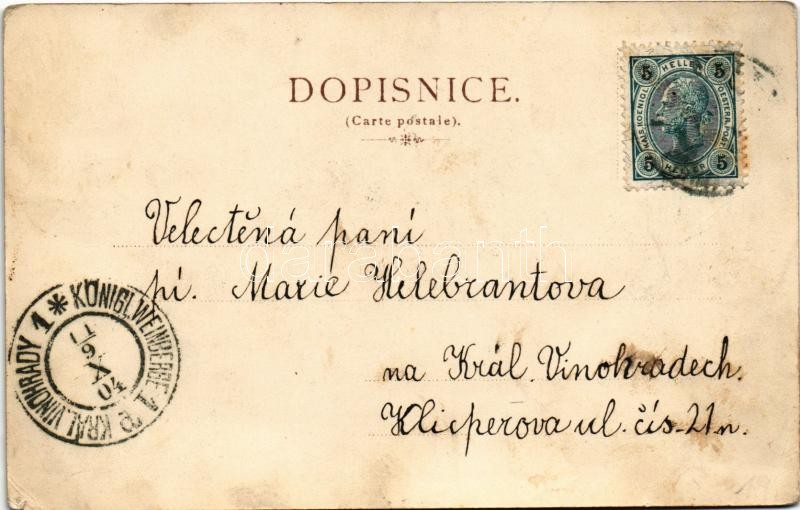 DOPISNICE.
(Carte postale).
5 HELLER 5
KAIS. KOENIGL. OESTERR. POST.
5 HELLER 5
Velectěná paní
pí. Marie Helebrantova
na Král. Vinohradech.
Klicperova ul. čís. 21 n.
1 * KÖNIGL. WEINBERGE
KRÁL. VINOHRADY
11/9
X
04
darabanth